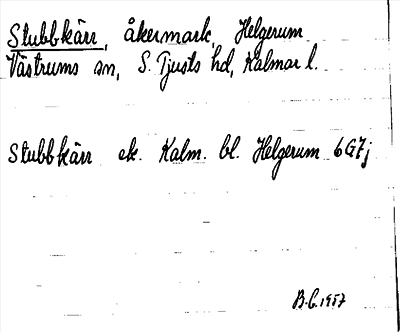 Stubbkärr, åkermark, Helgerum
Västrums sn, S. Tjusts hd, Kalmar l.
Stubbkärr ek. Kalm. bl. Helgerum 6G7j
B.G. 1957